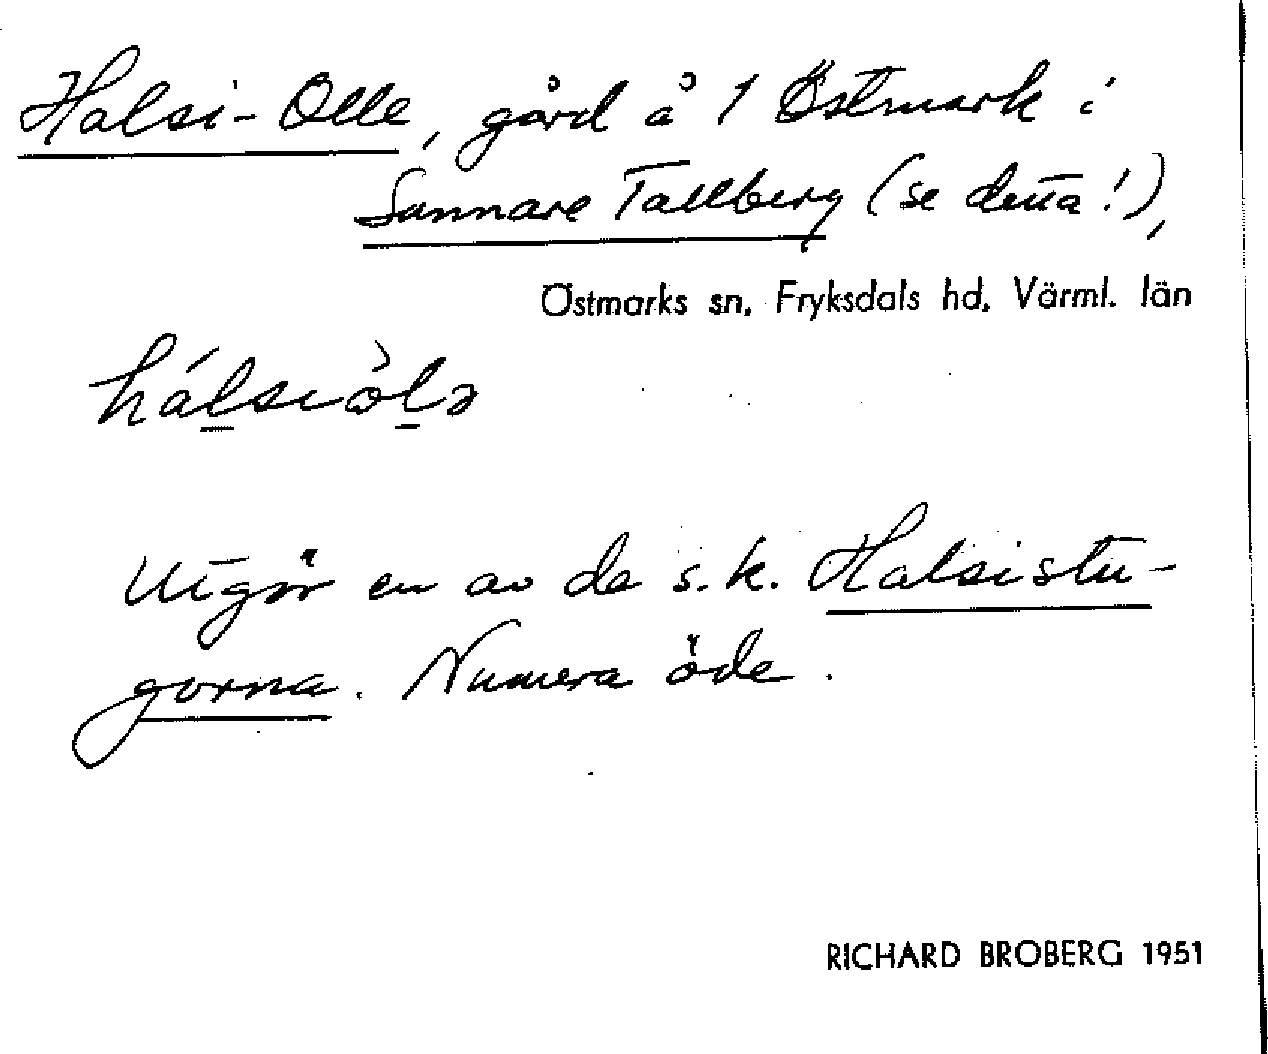 Halsi-Olle, gård å 1 Östmark i
Sunnare Tallberg (se detta!),
Östmarks sn, Fryksdals hd, Värml. län
hálsiòlə
Utgör en av de s.k. Halsistu-
gorna. Numera öde.
RICHARD BROBERG 1951